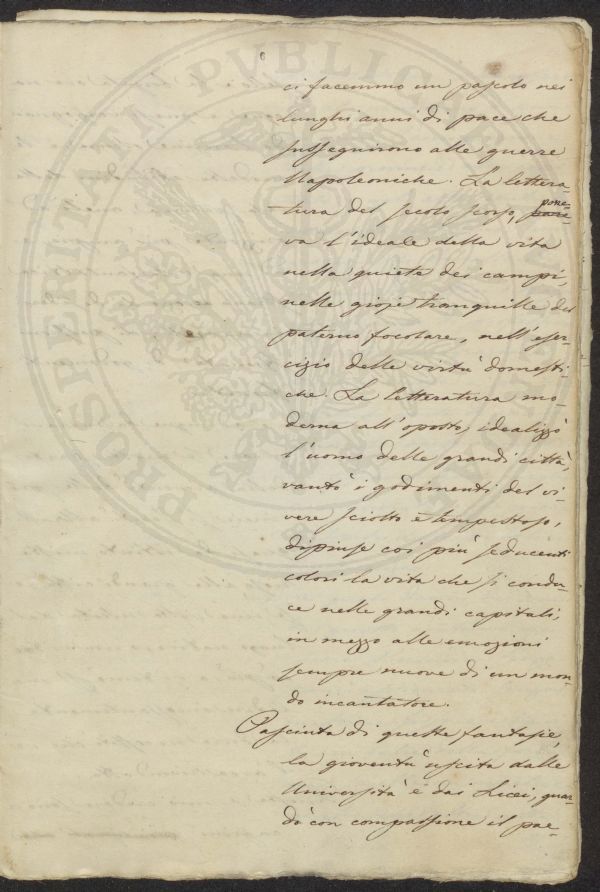 PROSPERITATI PVBLICAE
6
ci facemmo un pascolo nei
lunghi anni di pace che
susseguirono alle guerre
Napoleoniche. La lettera-
tura del secolo scorso, pone-
va l'ideale della vita
nella quiete dei campi,
nelle gioje tranquille del
paterno focolare, nell'eser-
cizio delle virtù domesti-
che. La letteratura mo-
derna all'opposto, idealizzò
l'uomo delle grandi città,
vantò i godimenti del vi-
vere sciolto e tempestoso,
dipinse coi più seducenti
colori la vita che si condu-
ce nelle grandi capitali,
in mezzo alle emozioni
sempre nuove di un mon-
do incantatore.
Pasciuta di queste fantasie,
la gioventù uscita dalle
Università e dai Licei, guar-
dò con compassione il pae-